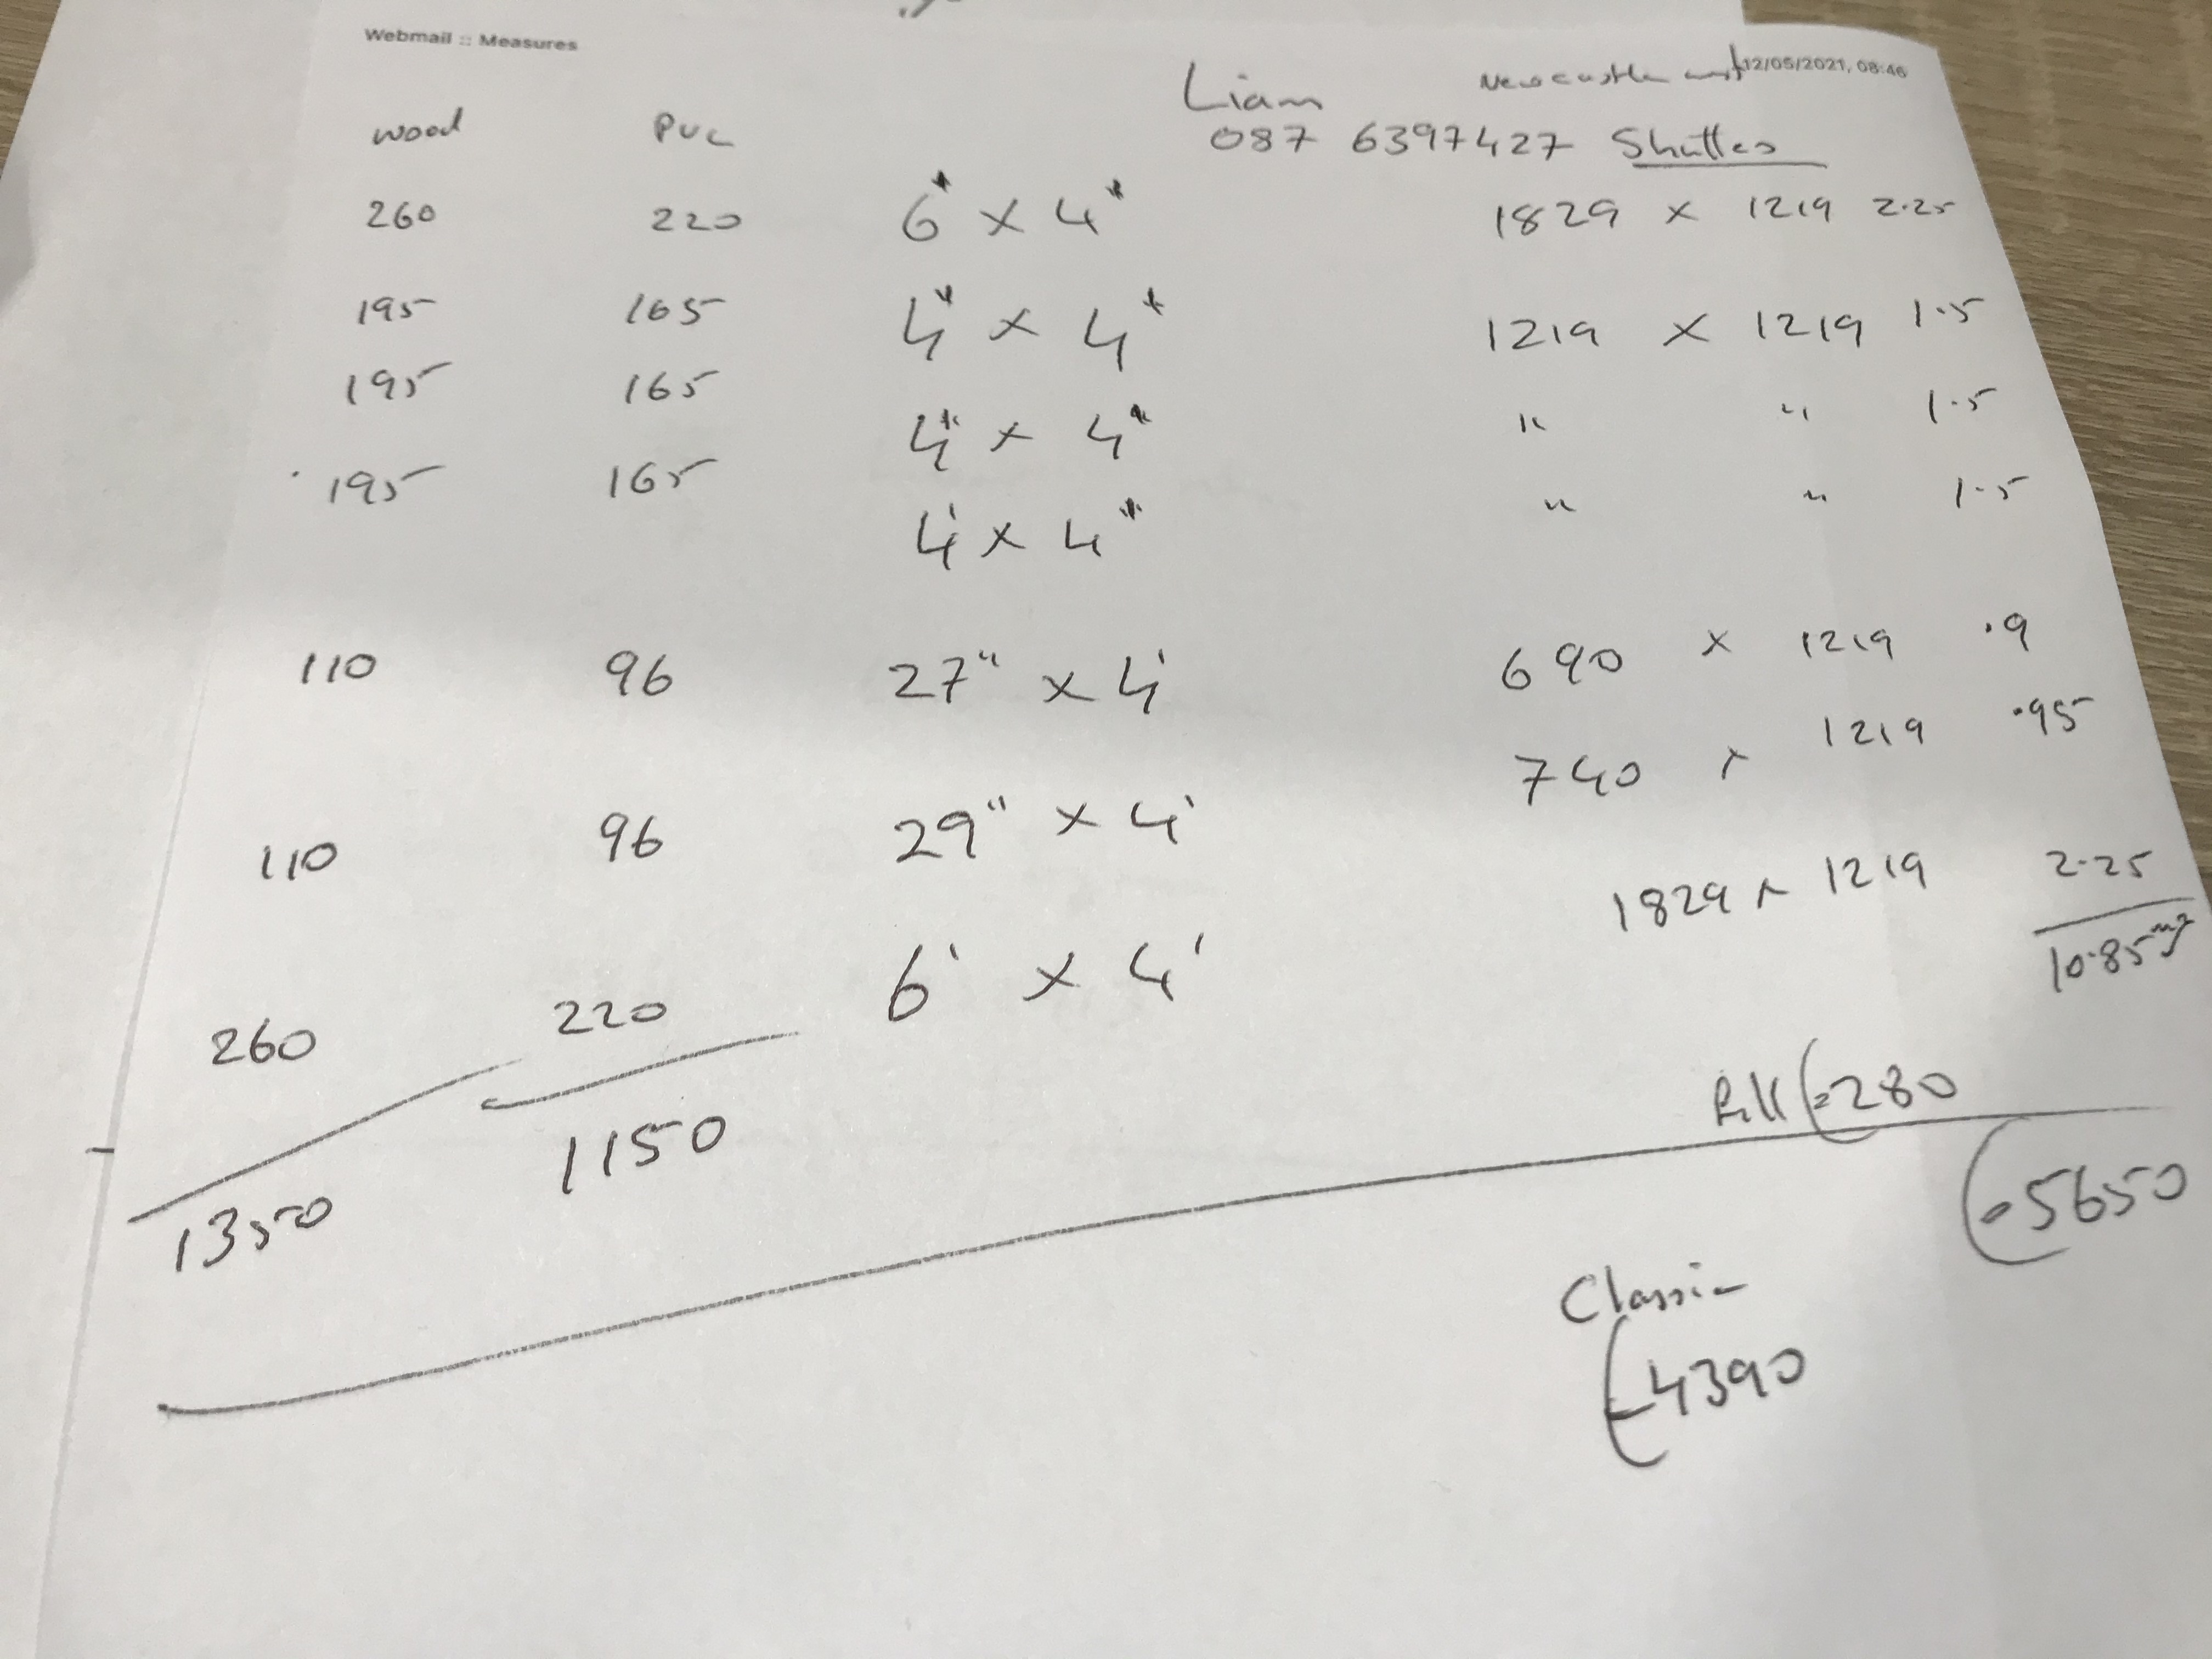 Webmail :: Measures
Liam Newcastle west 12/05/2021, 08:46
wood PVC 087 6397427 Shutters
260 220 6' x 4' 1829 x 1219 2.25
195 165 4' x 4' 1219 x 1219 1.5
195 165 4' x 4' " " 1.5
195 165 4' x 4' " " 1.5
110 96 27" x 4' 690 x 1219 .9
110 96 29" x 4' 740 x 1219 .95
260 220 6' x 4' 1829 x 1219 2.25
10.85
1350 1150
280
5650
Classic
4390